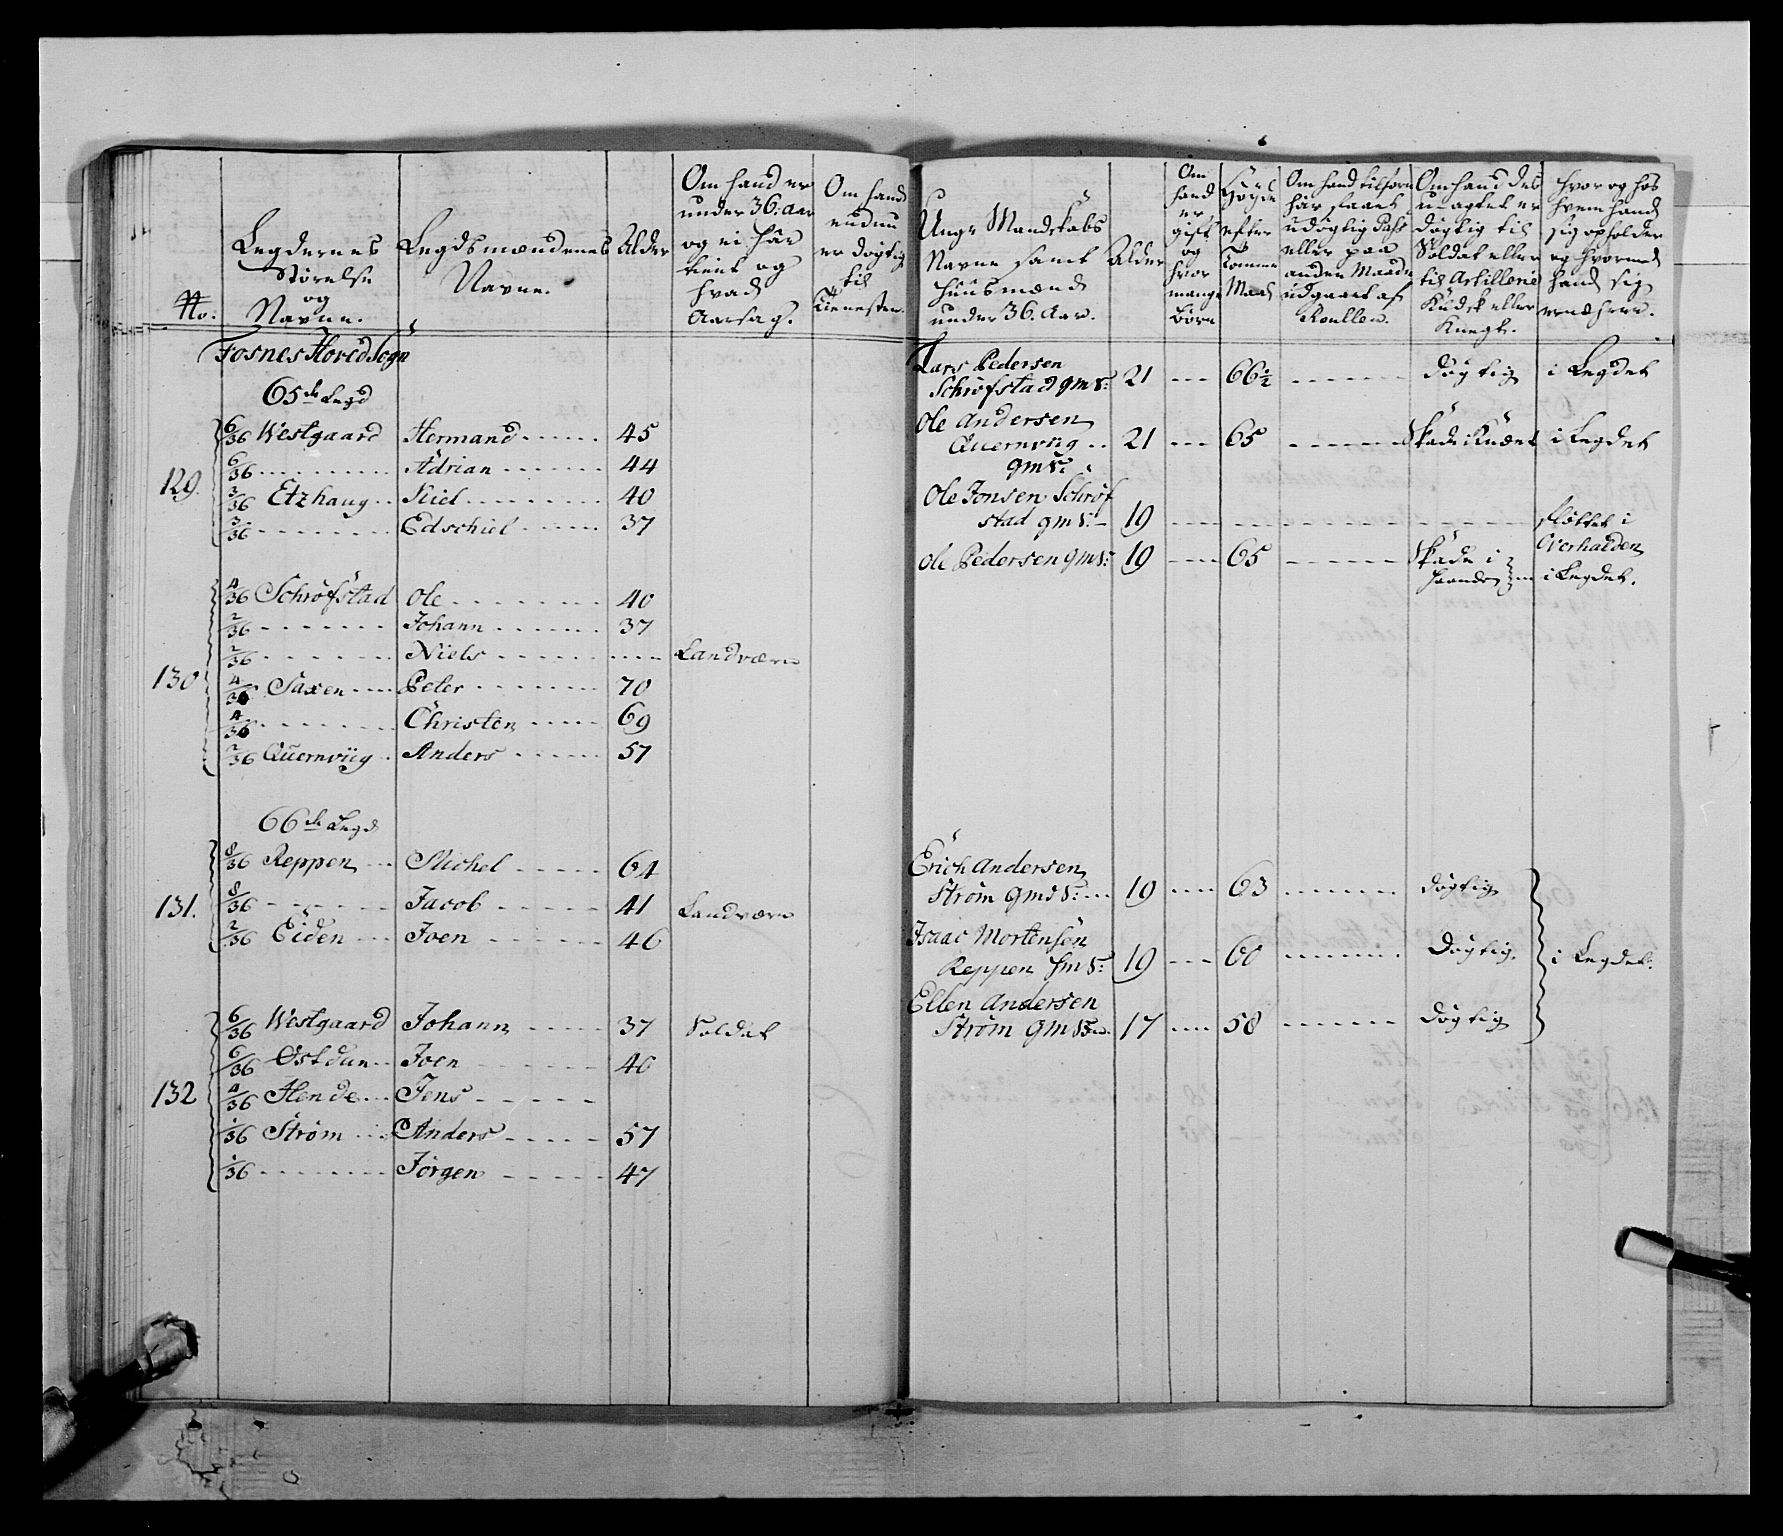 No:
Legdernes
Störelse
og
Navne.
Legdsmændenes
Navne.
Alder
Om hand er
under 36. Aar
og ei har
tient og
hvad
Aarsag.
Om hand
endnu
er døgtig
til
Tienesten.
Fosnes HovedSogn
65de Legd
129.
6/36 Westgaard Hermand 45
6/36 Adrian 44
3/36 Etzhaug Kiel 40
3/36 Edschiel 37
130
4/36 Schrofstad Ole 40
2/36 Johann 37
2/36 Niels Landværn
4/36 Saxen Peter 70
4/36 Christen 69
2/36 Quernviig Anders 57
66de Legd
131.
8/36 Reppen Michel 64
8/36 Jacob 41 Landværn
2/36 Eiden Joen 46
132
6/36 Westgaard Johann 37 Soldat
6/36 Østduun Joen 40
4/36 Hende Jens
1/36 Strøm Anders 57
1/36 Jørgen 47
Unge Mandskabs
Navne samt
Huusmænd
under 36. Aar.
Alder
Om
hand
er
gift
og
hvor
mange
Børn
Høyde
efter
Tomme
Maal
Om hand tilforn
har faaet
udøgtig Pass
eller paa
anden Maade
udgaaet af
Roullen.
Om hand des
uagtet er
døgtig til
Soldat eller
til Artillerie
Kudsk eller
Knegt.
Hvor og hos
hvem hand
sig opholder
og hvormed
hand sig
ernæhrer.
Lars Pedersen
Schrofstad gms: 21 66 1/2 døgtig i Legdet
Ole Andersen
Quernviig 21 65 Skade i Knæet i Legdet
gms:
Ole Jonsen Schrof
stad gms: 19 fløttet i
Overhalden
Ole Pedersen gms: 19 65 Skade i
Haanden i Legdet.
Erich Andersen
Strøm gms: 19 63 døgtig
Isaac Mortensen
Reppen hms: 19 60 Døgtig. i Legdet.
Ellen Andersen
Strøm gms: 17 58 døgtig